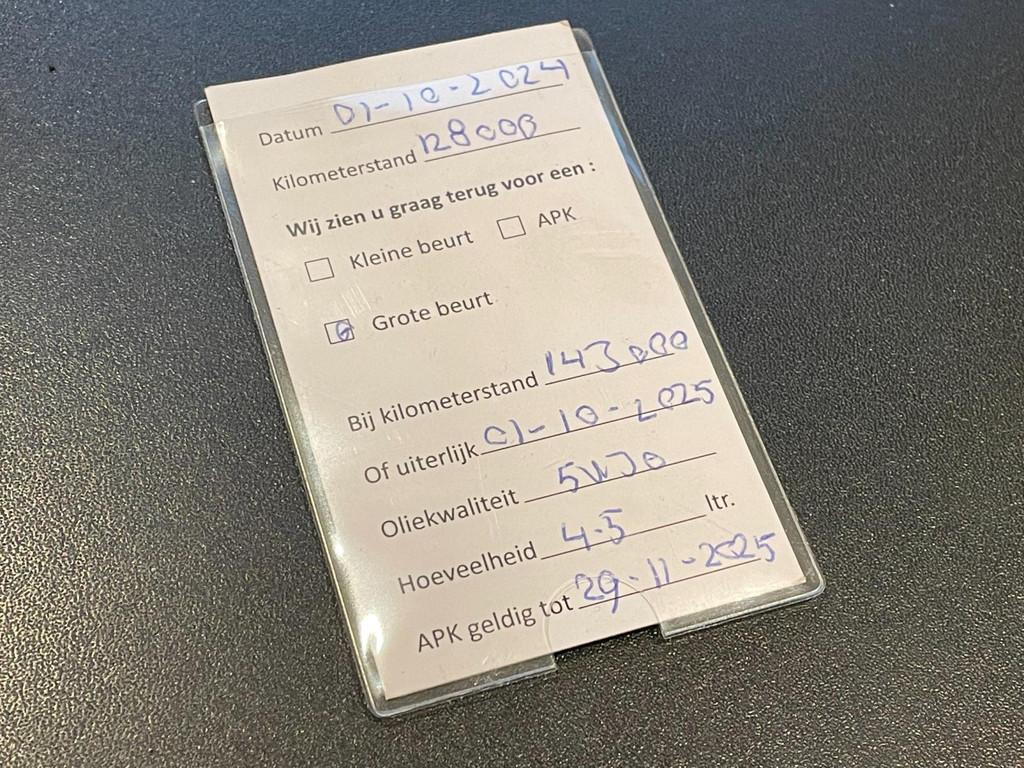 Datum 01-10-2024
Kilometerstand 128000
Wij zien u graag terug voor een :
Kleine beurt APK
Grote beurt
Bij kilometerstand 143000
Of uiterlijk 01-10-2025
Oliekwaliteit 5W30
Hoeveelheid 4.5 ltr.
APK geldig tot 29-11-2025